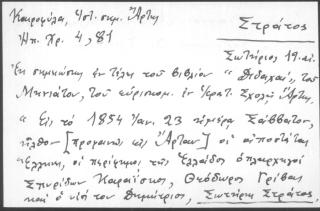 Καιροφύλα, Ιστ. σημ. Ἄρτης
Ηπ. Χρ. 4, 81
Στράτος
Σωτήριος 19. αι.
Ἐκ σημειώσης ἐν τέλει τοῦ βιβλίου "Διδαχαί", τοῦ
Μηνιάτου, τοῦ εὑρισκομ. ἐν Ἱερατ. Σχολῇ Ἄρτης.
"Εἰς τὸ 1854 Ἰαν. 23 ἡμέρα Σάββατον,
ἦλθον [προφανῶς εἰς Ἄρταν] οἱ ἀποστάται
Ἕλληνες, οἱ περίφημοι τῆς Ἑλλάδος ὁπλαρχηγοί
Σπυρίδων Καραΐσκος, Θεόδωρος Γρίβας
καὶ ὁ υἱός του Δημήτριος, Σωτήρης Στράτος,